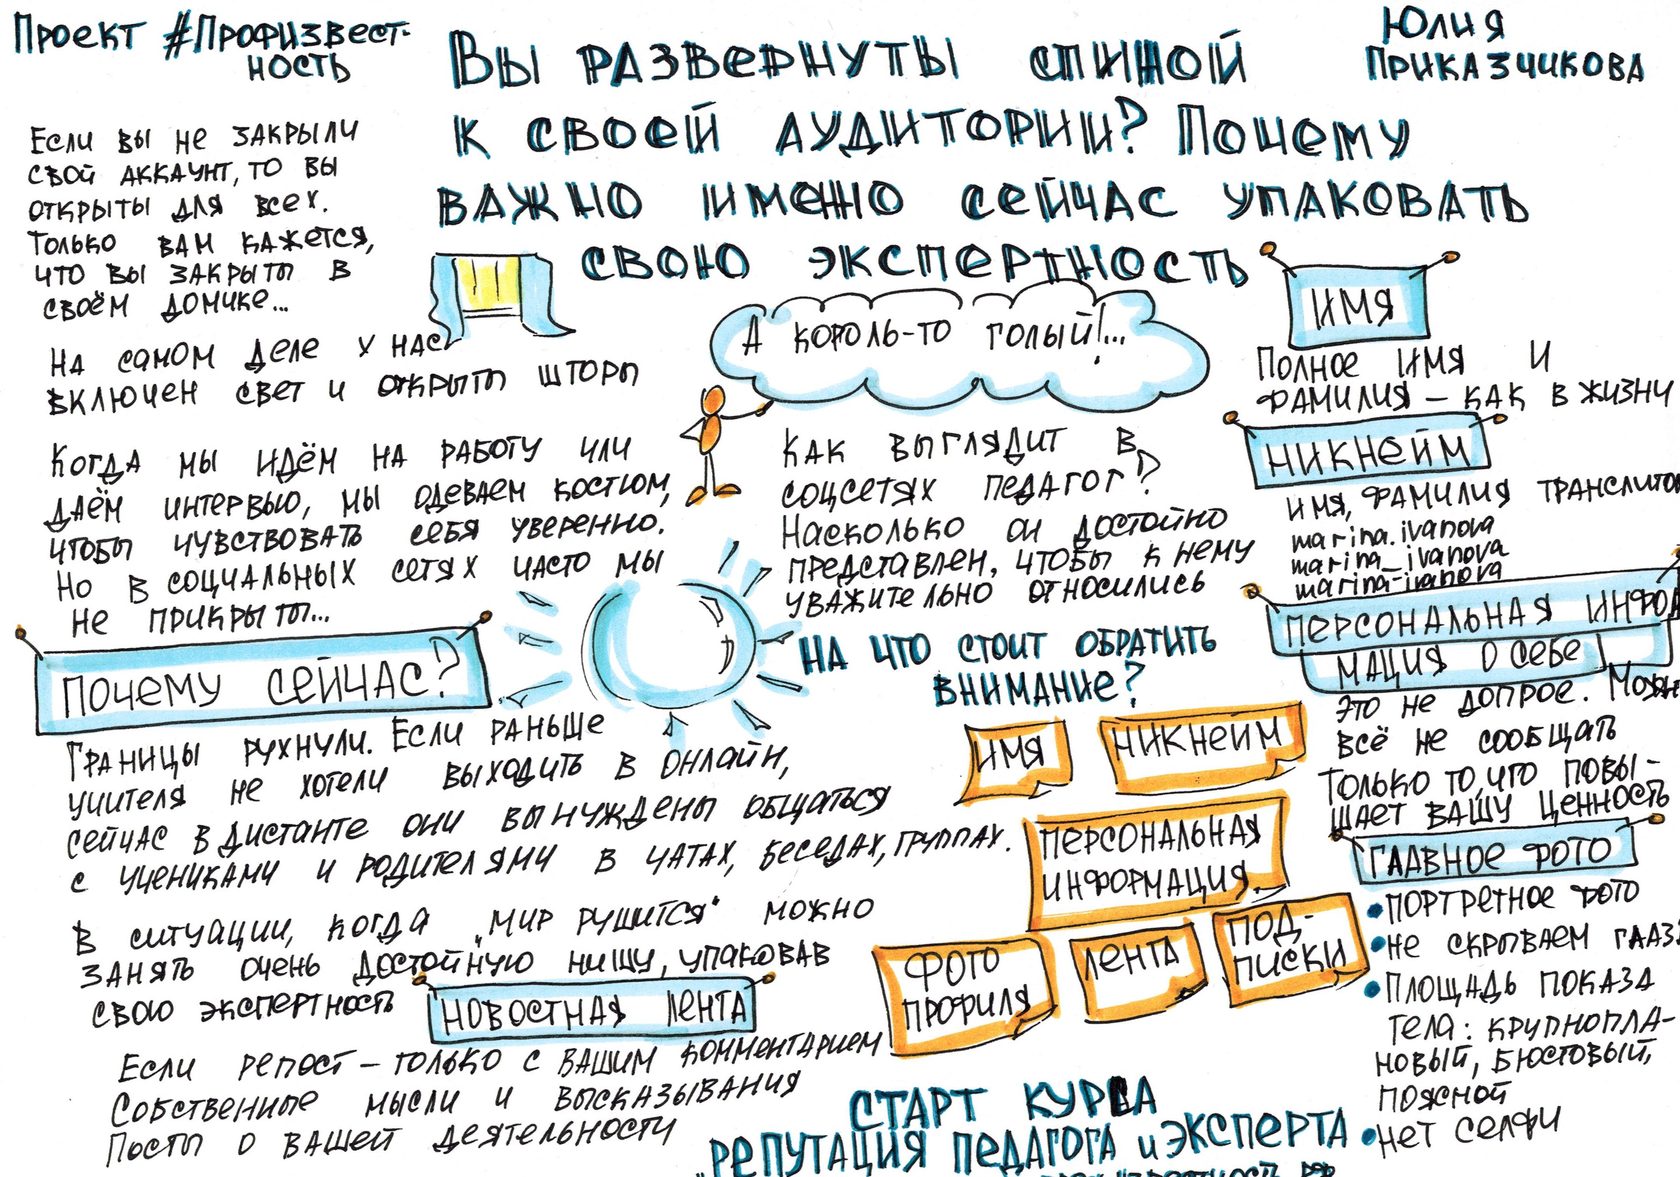 Проект #Профизвест-
ность
Вы развернуты спиной
к своей аудитории? Почему
важно именно сейчас упаковать
свою экспертность
Юлия
Приказчикова
Если вы не закрыли
свой аккаунт, то вы
открыты для всех.
Только вам кажется,
что вы закрыты в
своём домике...
На самом деле у нас
включен свет и открыты шторы
Когда мы идём на работу или
даём интервью, мы одеваем костюм,
чтобы чувствовать себя уверенно.
Но в социальных сетях часто мы
не прикрыты...
Почему сейчас?
Границы рухнули. Если раньше
учителя не хотели выходить в онлайн,
сейчас в дистанте они вынуждены общаться
с учениками и родителями в чатах, беседах, группах.
В ситуации, когда „мир рушится" можно
занять очень достойную нишу, упаковав
свою экспертность
Новостная лента
Если репост – только с вашим комментарием
Собственные мысли и высказывания
Посты о вашей деятельности
А король-то голый!...
Как выглядит в
соцсетях педагог?
Насколько он достойно
представлен, чтобы к нему
уважительно относились
На что стоит обратить
внимание?
Имя
Никнейм
Персональная
информация
Фото
профиля
Лента
Под-
писки
Старт курса
"Репутация педагога и эксперта
Имя
Полное имя и
фамилия – как в жизни
Никнейм
Имя, фамилия
marina.ivanova
marina_ivanova
marina-ivanova
Персональная инфор
мация о себе
Это не допрос.
всё не сообщать
Только то, что повы-
шает вашу ценность
Главное фото
• портретное фото
• не скрываем
• Площадь показа
тела: крупнопла-
новый, бюстовый,
поясной
• нет селфи